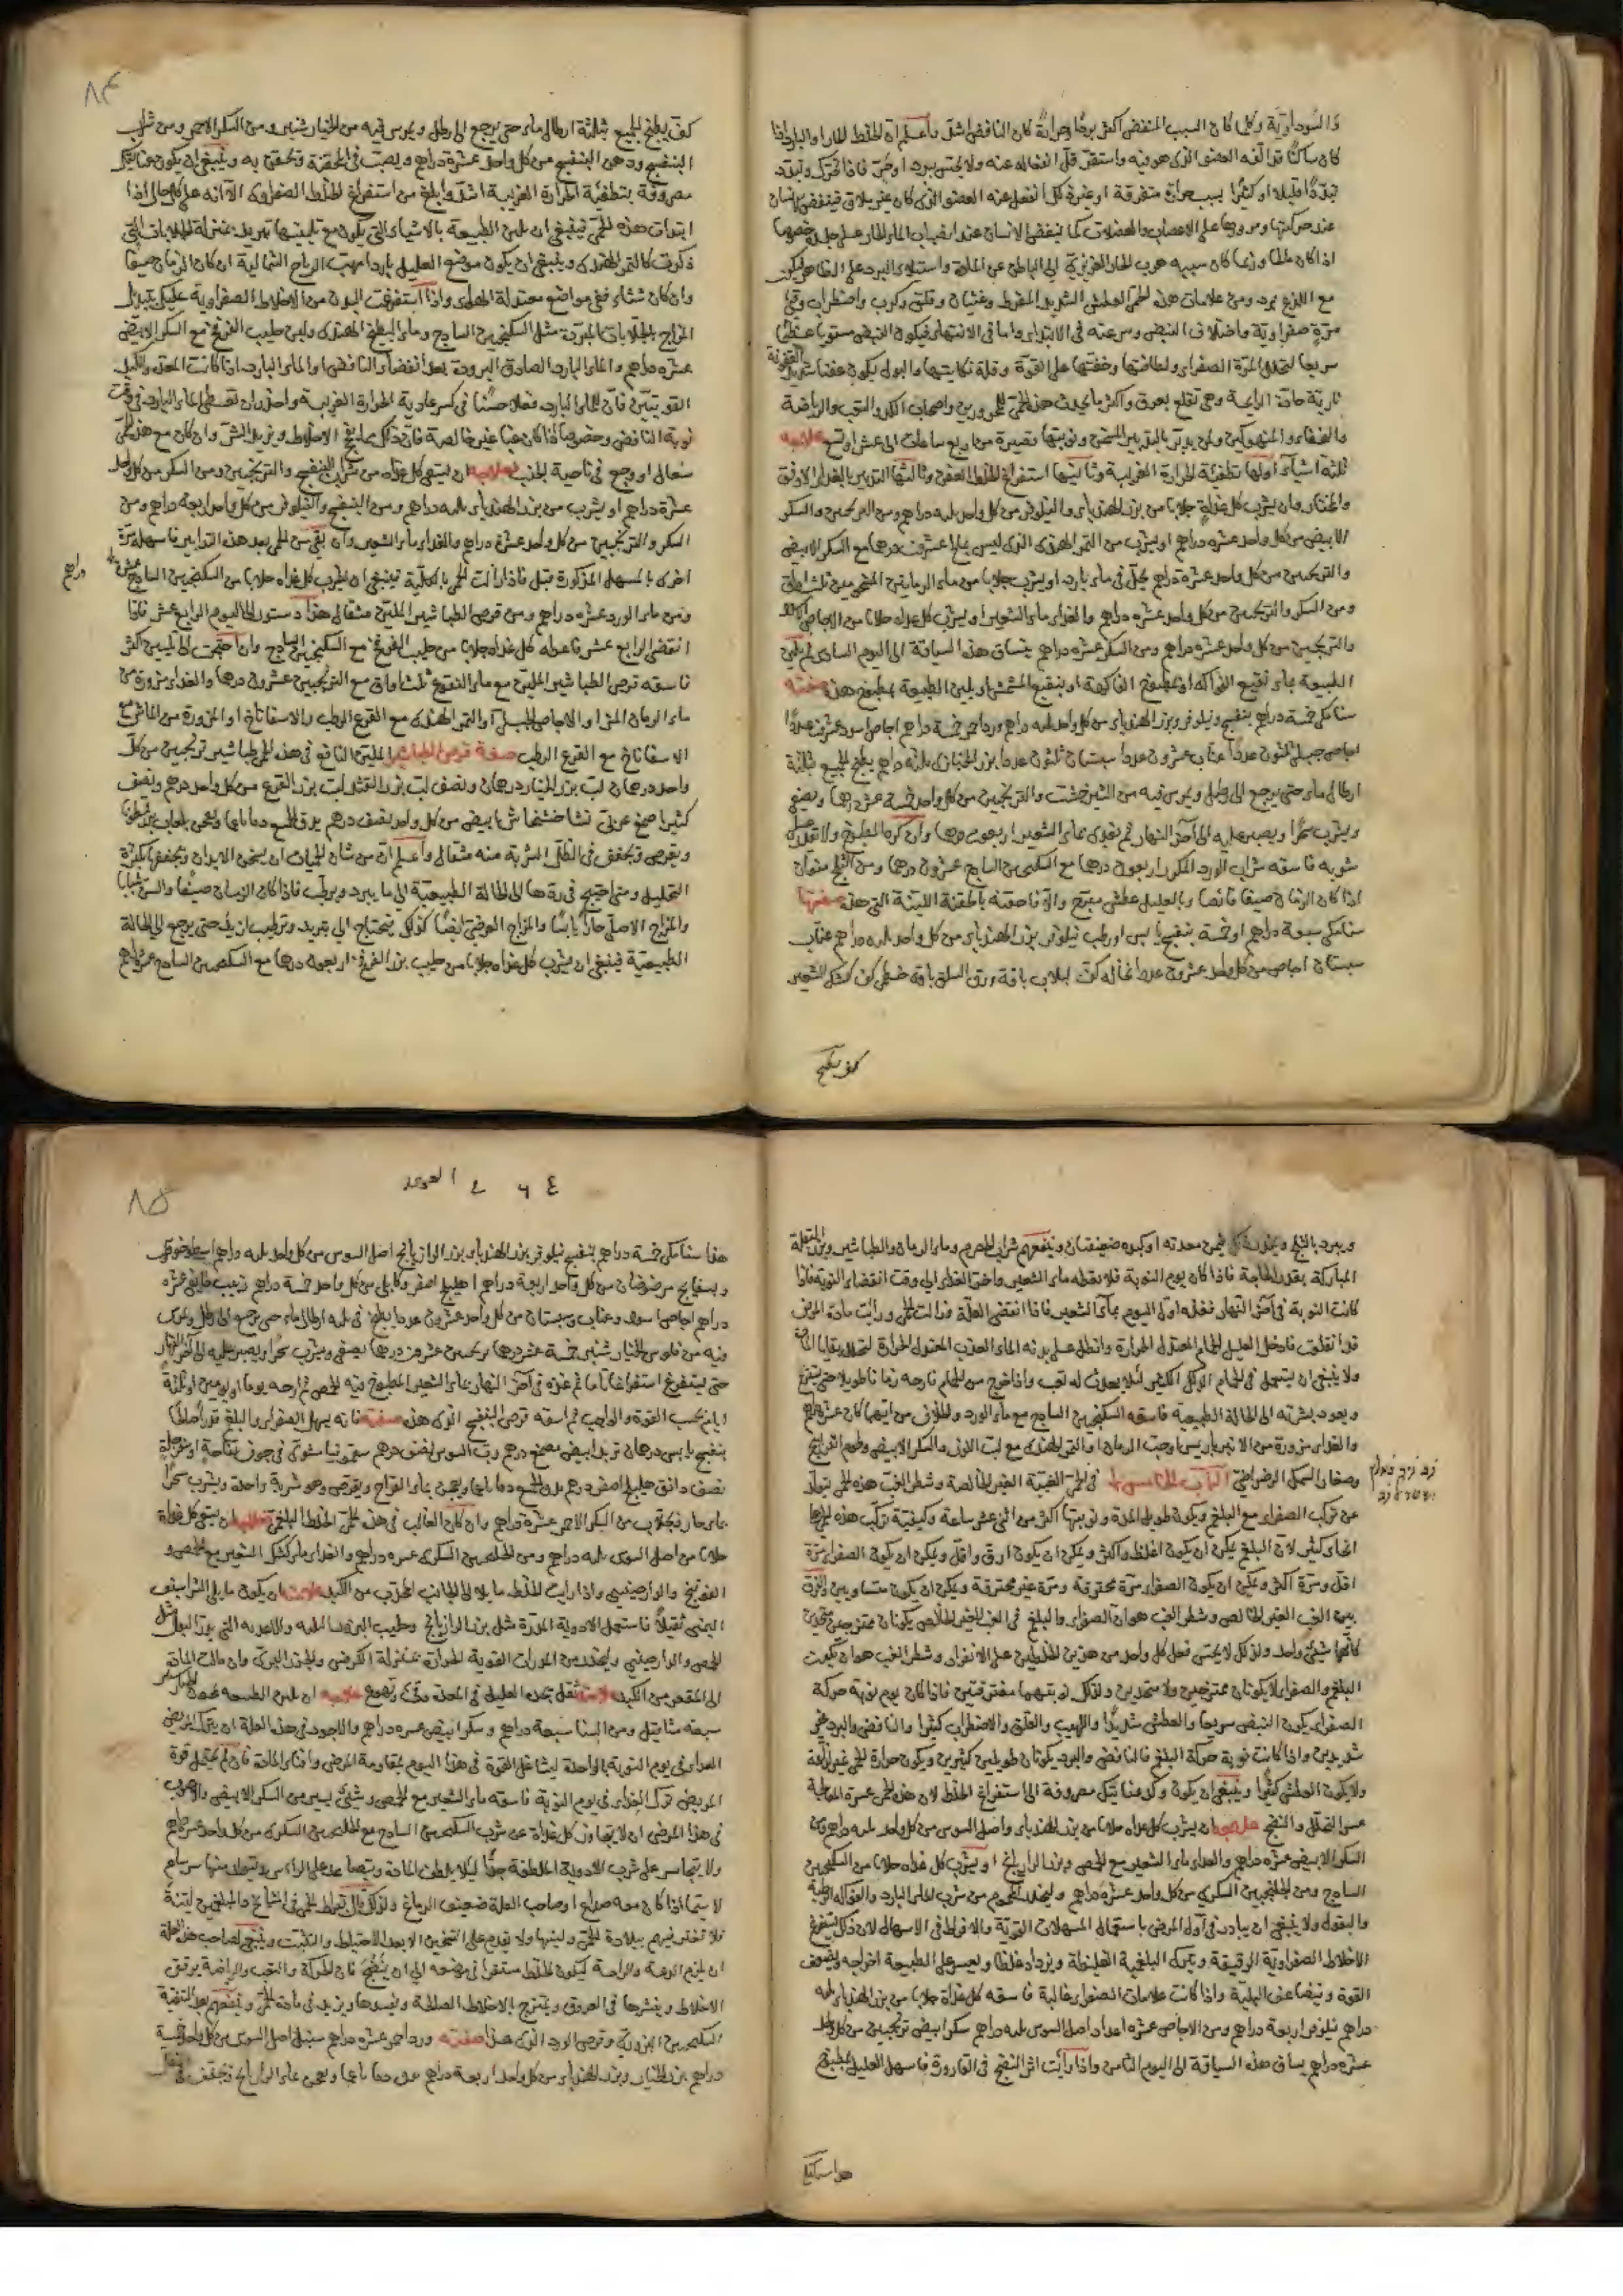 ذا السوداوية وكلما كان السبب المنفض أكثر بردا وحرافة كان النافض اشد واعلم ان الخلط الحار او البارد اذا
كان ساكنا قد الفه العضو الذى هو فيه واستقر قل انفعاله عنه ولا يحس ببرده او حره فاذا تحرك وتبدد
تبددا قليلا او كثيرا بسبب حرارة متفرقة او غيره كل انفعل عنه العضو الذى كان غير ملاق فينتفض الانسان
عند حركتها ومرورها على الاعصاب والعضلات كما ينتفض الانسان عند انصباب الماء الحار على جلده خصوصا
اذا كان مالحا وربما كان سببه هرب الحار الغريزى الى الباطن عن المادة واستيلاء البرد على الظاهر فيكون
مع اللذع برد ومن علامات هذه الحمى العطش الشديد المفرط وغثيان وقلق وكرب واضطراب وقئ
مرة صفراوية واختلاف النبض وسرعته فى الابتداء واما فى الانتهاء فيكون النبض مستويا عظيما
سريعا لتخلخل المرة الصفراء ولطافتها وخفتها على القوة وقلة نكايتها والبول يكون عفنا شديد العفونة
نارية حادة الرايحة وهى تقلع بعرق واكثر ما يحدث هذه الحمى للمحرورين واصحاب الكد والتعب والرياضة
والخفاء والمنهوكين ولمن يدبر بالتدبير المسخن ونوبتها قصيرة من اربع ساعات الى عشر او تسع علاجه
ثلثة اشياء اولها تطفية الحرارة الغريبة وثانيها استفراغ الخلط العفن وثالثها التدبير بالغذاء الاوفق
والمختار وان يشرب كل غداة جلابا من بزر الهندباء والنيلوفر من كل واحد ثلثه دراهم ومن الترنجبين والسكر
الابيض من كل واحد عشره دراهم او يشرب من التمر الهندى الذى ليس بمالح عشرون درهما مع السكر الابيض
والترنجبين من كل واحد عشرة دراهم يحل فى ماء بارد او يشرب جلابا من ماء الرمانين
ومن السكر والترنجبين من كل واحد عشره دراهم والغذاء ماء الشعير او يشرب كل غداه جلابا من الاجاص
والترنجبين من كل واحد عشرة دراهم ومن السكر عشره دراهم يساق هذه السياقة الى اليوم السادس ثم يلين
الطبيعة بماء نقيع الفواكه او بمطبوخ الفاكهة او بنقيع المشمش او يلين الطبيعة بمطبوخ هذه صفته
سنا مكى خمسة دراهم بنفسج ونيلوفر وبزر الهندباء من كل واحد ثلثه دراهم ورد احمر خمسة دراهم اجاص اسود عشرون عددا
اجاص جبلى ثلثون عددا عناب عشرون عددا سبستان ثلثون عددا بزر الخبازى ثلثه دراهم يطبخ الجميع بثلثة
ارطال ماء حتى يرجع الى رطل ويمرس فيه من الشيرخشت والترنجبين من كل واحد خمسة عشر درهما ويصفى
ويشرب سحرا ويصبر عليه الى آخر النهار ثم يغذى بماء الشعير اربعون درهما وان كره المطبوخ ولا يقدر على
شربه فاسقه شراب الورد المكرر اربعون درهما مع السكنجبين الساذج عشرون درهما ومن الثلج منوان
اذا كان الزمان صيفا قائضا وبالعليل عطش مبرح والا فاحقنه بالحقنة اللينة التى هذه صفتها
سنا مكى سبعة دراهم او خمسة بنفسج يابس او رطب نيلوفر بزر الهندباء من كل واحد ثلثه دراهم عناب
سبستان اجاص من كل واحد عشرون عددا نخاله كف لبلاب باقة ورق السلق باقة خطمى كف كشك الشعير
كف يطبخ
٨٤
كف يطبخ الجميع بثلثة ارطال ماء حتى يرجع الى رطل ويمرس فيه من الخيار شنبر ومن السكر الاحمر ومن شراب
البنفسج ودهن البنفسج من كل واحد عشرة دراهم ويصب فى المحقنة وتحقن به وينبغى ان يكون عنايتك
مصروفة بتطفئة الحرارة الغريبة اشد وابلغ من استفراغ الخلط الصفراوى الا انه على كل حال اذا
ابتدات هذه الحمى فينبغى ان تلين الطبيعة بالاشياء التى يكون مع تليينها تبريد بمنزلة الجلابات التى
ذكرت كالتمر الهندى وينبغى ان يكون موضع العليل باردا مهب الرياح الشمالية ان كان الزمان صيفا
وان كان شتاء ففى مواضع معتدلة الهواء واذا استفرغت البدن من الاخلاط الصفراوية عليك بتبديل
المزاج بالجلابات المبردة مثل السكنجبين الساذج وماء البطيخ الهندى ولبن حليب الفرفخ مع السكر الابيض
عشره دراهم والماء البارد الصادق البرودة بعد انقضاء النافض والماء البارد اذا كانت المعدة والكبد
القويتين فان للماء البارد فعلا حسنا فى كسر عادية الحرارة الغريبة واحذر ان تعطى الماء البارد فى وقت
نوبة النافض وخصوصا اذا كان غبا غير خالصة فان ذلك مما يفج الاخلاط ويزيد الشر وان كان مع هذه الحمى
سعال او وجع فى ناحية الجنب فعلاجه ان يسقى كل غداه من شراب البنفسج والترنجبين ومن السكر من كل واحد
عشرة دراهم او يشرب من بزر الهندباء ثلثه دراهم ومن البنفسج والنيلوفر من كل واحد اربعة دراهم ومن
السكر والترنجبين من كل واحد عشرة دراهم والغذاء ماء الشعير وان بقى من الحمى بعد هذه التدابير فاسهله مرة
اخرى بالمسهل المذكورة قبل فاذا زالت الحمى بالكلية فينبغى ان يشرب كل غداه جلابا من السكنجبين الساذج عشرة
دراهم
ومن ماء الورد عشره دراهم ومن قرص الطباشير الملين مثقالى هذا دستور الى اليوم الرابع عشر فاذا
انقضى الرابع عشر فاعطه كل غداه جلابا من حليب الفرفخ مع السكنجبين الساذج وان احتجت الى تليين اكثر
فاسقه قرص الطباشير الملين مع ماء النقوع ثلث اواق مع الترنجبين عشرون درهما والغذاء مزورة من
ماء الرمان المز او الاجاص الجبلى او التمر الهندى مع القرع الرطب والاسفاناخ او المزورة من الماش مع
الاسفاناخ مع القرع الرطب صفة قرص الطباشير الملين النافع فى هذه الحمى طباشير ترنجبين من كل
واحد درهمان لب بزر الخيار درهمان ونصف لب بزر القثا لب بزر القرع من كل واحد درهم ونصف
كثيرا صمغ عربى نشا خشخاش ابيض من كل واحد نصف درهم يدق الجميع دقا ناعما ويعجن بلعاب بزر قطونا
ويقرص ويجفف فى الظل الشربة منه مثقال واعلم ان من شان الحميات ان يسخن الابدان ويجففها بكثرة
التحليل ومتى احتيج فى ردها الى الحالة الطبيعية الى ما يبرد ويرطب فاذا كان الزمان صيفا والسن شبابا
والمزاج الاصلى حارا يابسا والمزاج العرضى ايضا كذلك يحتاج الى تبريد وترطيب ازيد حتى يرجع الى الحالة
الطبيعية فينبغى ان يشرب كل غداه جلابا من حليب بزر الفرفخ اربعون درهما مع السكنجبين الساذج عشرة دراهم
ويبرد بالثلج فيمن معدته او كبده ضعيفتان وينفعهم شراب الحصرم وماء الرمان والطباشير وبزر البقلة
المباركة بقدر الحاجة فاذا كان يوم النوبة فلا يعطه ماء الشعير واخر الغذاء الى وقت انقضاء النوبة فاذا
كانت النوبة فى آخر النهار فغذه اول اليوم بماء الشعير فاذا انقضى العلة وزالت الحمى ورايت مادة المرض
قد انقلعت فادخل العليل الحمام المعتدل الحرارة وانطل على بدنه الماء العذب المعتدل الحرارة لتحلل بقايا المادة
ولا ينبغى ان يستعمل فى الحمام الدلك الكثير لئلا يحدث له تعب واذا خرج من الحمام فارحه زمانا طويلا حتى يتفرغ
ويعود بشرته الى الحالة الطبيعية فاسقه السكنجبين الساذج مع ماء الورد والجلاب من ايهما كان عشرة دراهم
والغذاء مزورة من الانبرباريس او حب الرمان او التمر الهندى مع لب اللوز والسكر الابيض ولحوم الفراريج
وصغار السمك الرضراضى الباب الخامس فى الحمى الغبية الغير الخالصة وشطر الغب هذه الحمى تتولد
عن تركب الصفراء مع البلغم ويكون طويل المدة ونوبتها اكثر من اثنى عشر ساعة وكيفية تركب هذه الحمى على
انحاء كثير لان البلغم يمكن ان يكون اغلظ واكثر ويمكن ان يكون ارق واقل ويمكن ان يكون الصفراء مرة
اقل ومرة اكثر ويمكن ان يكون الصفراء مرة محترقة ومرة غير محترقة ويمكن ان يكون متساويين والفرق
بين الغب الغير الخالص وشطر الغب هو ان الصفراء والبلغم فى الغب الغير الخالص يكونان ممتزجين متحدين
كانهما شىء واحد ولذلك لا يحس فعل كل واحد من هذين الخلطين على الانفراد وشطر الغب هو ان يكون
البلغم والصفراء لا يكونان ممتزجين ولا متحدين ولذلك نوبتهما مفترقتين فاذا كان يوم نوبة حركة
الصفراء يكون النبض سريعا والعطش شديدا واللهيب والقلق والاضطراب كثيرا والنافض والبرد غير
شديدين واذا كانت نوبة حركة البلغم فالنافض والبرد يكونان طويلين كثيرين ويكون حرارة الحمى غير لذاعة
ولا يكون العطش كثيرا وينبغى ان يكون وكد عنايتك مصروفة الى استفراغ الخلط لان هذه الحمى عسرة
عسر التحلل والنضج علاجه ان يشرب كل غداه جلابا من بزر الهندباء واصل السوس من كل واحد ثلثه دراهم ومن
السكر الابيض عشره دراهم والغذاء ماء الشعير مع الحمص وبزر الرازيانج او يشرب كل غداه جلابا من السكنجبين
الساذج ومن الجلنجبين السكرى من كل واحد عشرة دراهم وليحذر المحموم من شرب الماء البارد والفواكه الرطبة
والبقول ولا ينبغى ان يبادر فى اول المرض باستعمال المسهلات القوية والافراط فى الاسهال لان ذلك يستفرغ
الاخلاط الصفراوية الرقيقة ويترك البلغمية الغليظة ويزداد غلظا ويعسر على الطبيعة اخراجه ويضعف
القوة ويتضاعف البلية واذا كانت علامات الصفراء غالبة فاسقه كل غداة جلابا من بزر الهندباء ثلثه
دراهم نيلوفر اربعة دراهم ومن الاجاص عشره اعداد اصل السوس ثلثه دراهم سكر ابيض ترنجبين من كل واحد
عشره دراهم يساق هذه السياقة الى اليوم الثامن واذا رايت اثر النضج فى القارورة فاسهل العليل بمطبوخ
هذا سنا مكى
٨٥
هذا سنا مكى خمسة دراهم بنفسج نيلوفر بزر الهندباء بزر الرازيانج اصل السوس من كل واحد ثلثه دراهم اسطوخودوس
وبسفايج مرضوضان من كل واحد اربعة دراهم اهليلج اصفر وكابلى من كل واحد خمسة دراهم زبيب طايفى عشره
دراهم اجاص اسود وعناب وسبستان من كل واحد عشرون عددا يطبخ فى ثلثه ارطال ماء حتى يرجع الى رطل ويمرس
فيه من فلوس الخيار شنبر خمسة عشر درهما ترنجبين عشرون درهما يصفى ويشرب سحرا ويصبر عليه الى آخر النهار
حتى يستفرغ استفراغا تاما ثم غذه فى آخر النهار بماء الشعير المطبوخ فيه الحمص ثم ارحه يوما او يومين او ثلثة
ايام بحسب القوة والواجب ثم اسقه قرص البنفسج الذى هذه صفته فانه يسهل الصفراء والبلغم
بنفسج يابس درهمان تربد ابيض مصمغ درهم رب السوس نصف درهم سقمونيا مشوى فى جوف تفاحة او سفرجلة
نصف دانق هليلج اصفر درهم يدق الجميع دقا ناعما ويعجن بماء القراح ويقرص وهو شربة واحدة ويشرب سحرا
بماء حار وبجلاب من السكر الاحمر عشرة دراهم وان كان الغالب فى هذه الحمى الخلط البلغمى فعلاجه ان يسقى كل غداة
جلابا من اصل السوس ثلثه دراهم ومن الجلنجبين السكرى عشره دراهم والغذاء ماء كشك الشعير مع الحمص و
الفوتنج والدارصينى واذا رايت الخلط مايلا الى الجانب المحدب من الكبد علامته ان يكون ما يلى الشراسيف
اليمنى ثقيلا فاستعمل الادوية المدرة مثل بزر الرازيانج وحليب البزور الثلثه والاغذيه التى يدر البول مثل
الحمص والدارصينى وليحذر من المدرات القوية الحرارة بمنزلة الكرفس والجزر البرى وان مالت المادة
الى المقعر من الكبد علامته ثقل يجده العليل فى المعدة وقئ وتهوع علاجه ان تلين الطبيعه بمعجون الخيار شنبر
سبعه مثاقيل ومن السنا سبعة دراهم وسكر ابيض عشره دراهم والاجود فى هذه العلة ان يترك المريض
الغذاء فى يوم النوبة بالواحدة ليتشاغل القوة فى هذا اليوم بمقاومة المرض وافناء المادة فان لم يحتمل قوة
المريض ترك الغذاء فى يوم النوبة فاسقه ماء الشعير مع الحمص وشىء يسير من السكر الابيض والاصوب
فى هذا المرض ان لا يتجاوز كل غداة عن شرب السكنجبين الساذج مع الجلنجبين السكرى من كل واحد عشره دراهم
ولا يتجاسر على شرب الادوية الملطفة جدا ليلا يلطف المادة ويتصاعد على الراس ويتولد منها سرسام
لا سيما اذا كان معه صداع او صاحب العلة ضعيف الدماغ ولذلك قال بقراط الحمى فى المشايخ والبلغمين لينة
فلا تغتر فيهم ببلادة الحمى ولينها ولا تقدم على التسخين الا بعد الاحتياط والتثبت وينبغى لصاحب هذه العلة
ان يلزم الدعة والراحة ليكون الخلط مستقرا فى موضعه الى ان ينضج فان الحركة والتعب والرياضة يرقق
الاخلاط وينشرها فى العروق ويمتزج بالاخلاط الصالحة ويفسدها ويزيد فى مادة الحمى وينفعهم بعد التنقية
السكنجبين البزورى وقرص الورد الذى هذا صفته ورد احمر عشره دراهم سنبل اصل السوس من كل واحد خمسة
دراهم بزر الخيار وبزر الهندباء من كل واحد اربعة دراهم يدق دقا ناعما ويعجن بماء الرازيانج ويجفف فى